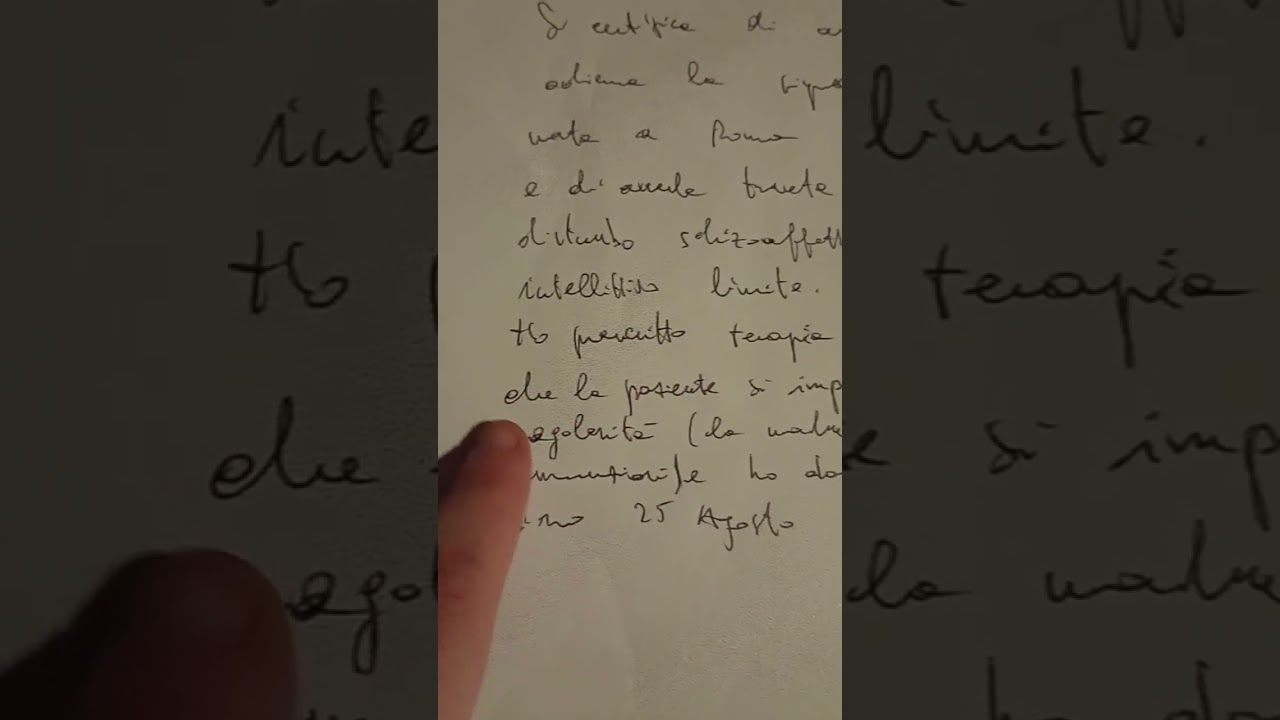 Si certifica di a
odierna la sign
nata a Roma
e di averla trovata
disturbo schizoaffett
intellettivo limite.
Ho prescritto terapia
che la paziente si imp
egolarità (la madre
e ho da
25 Agosto